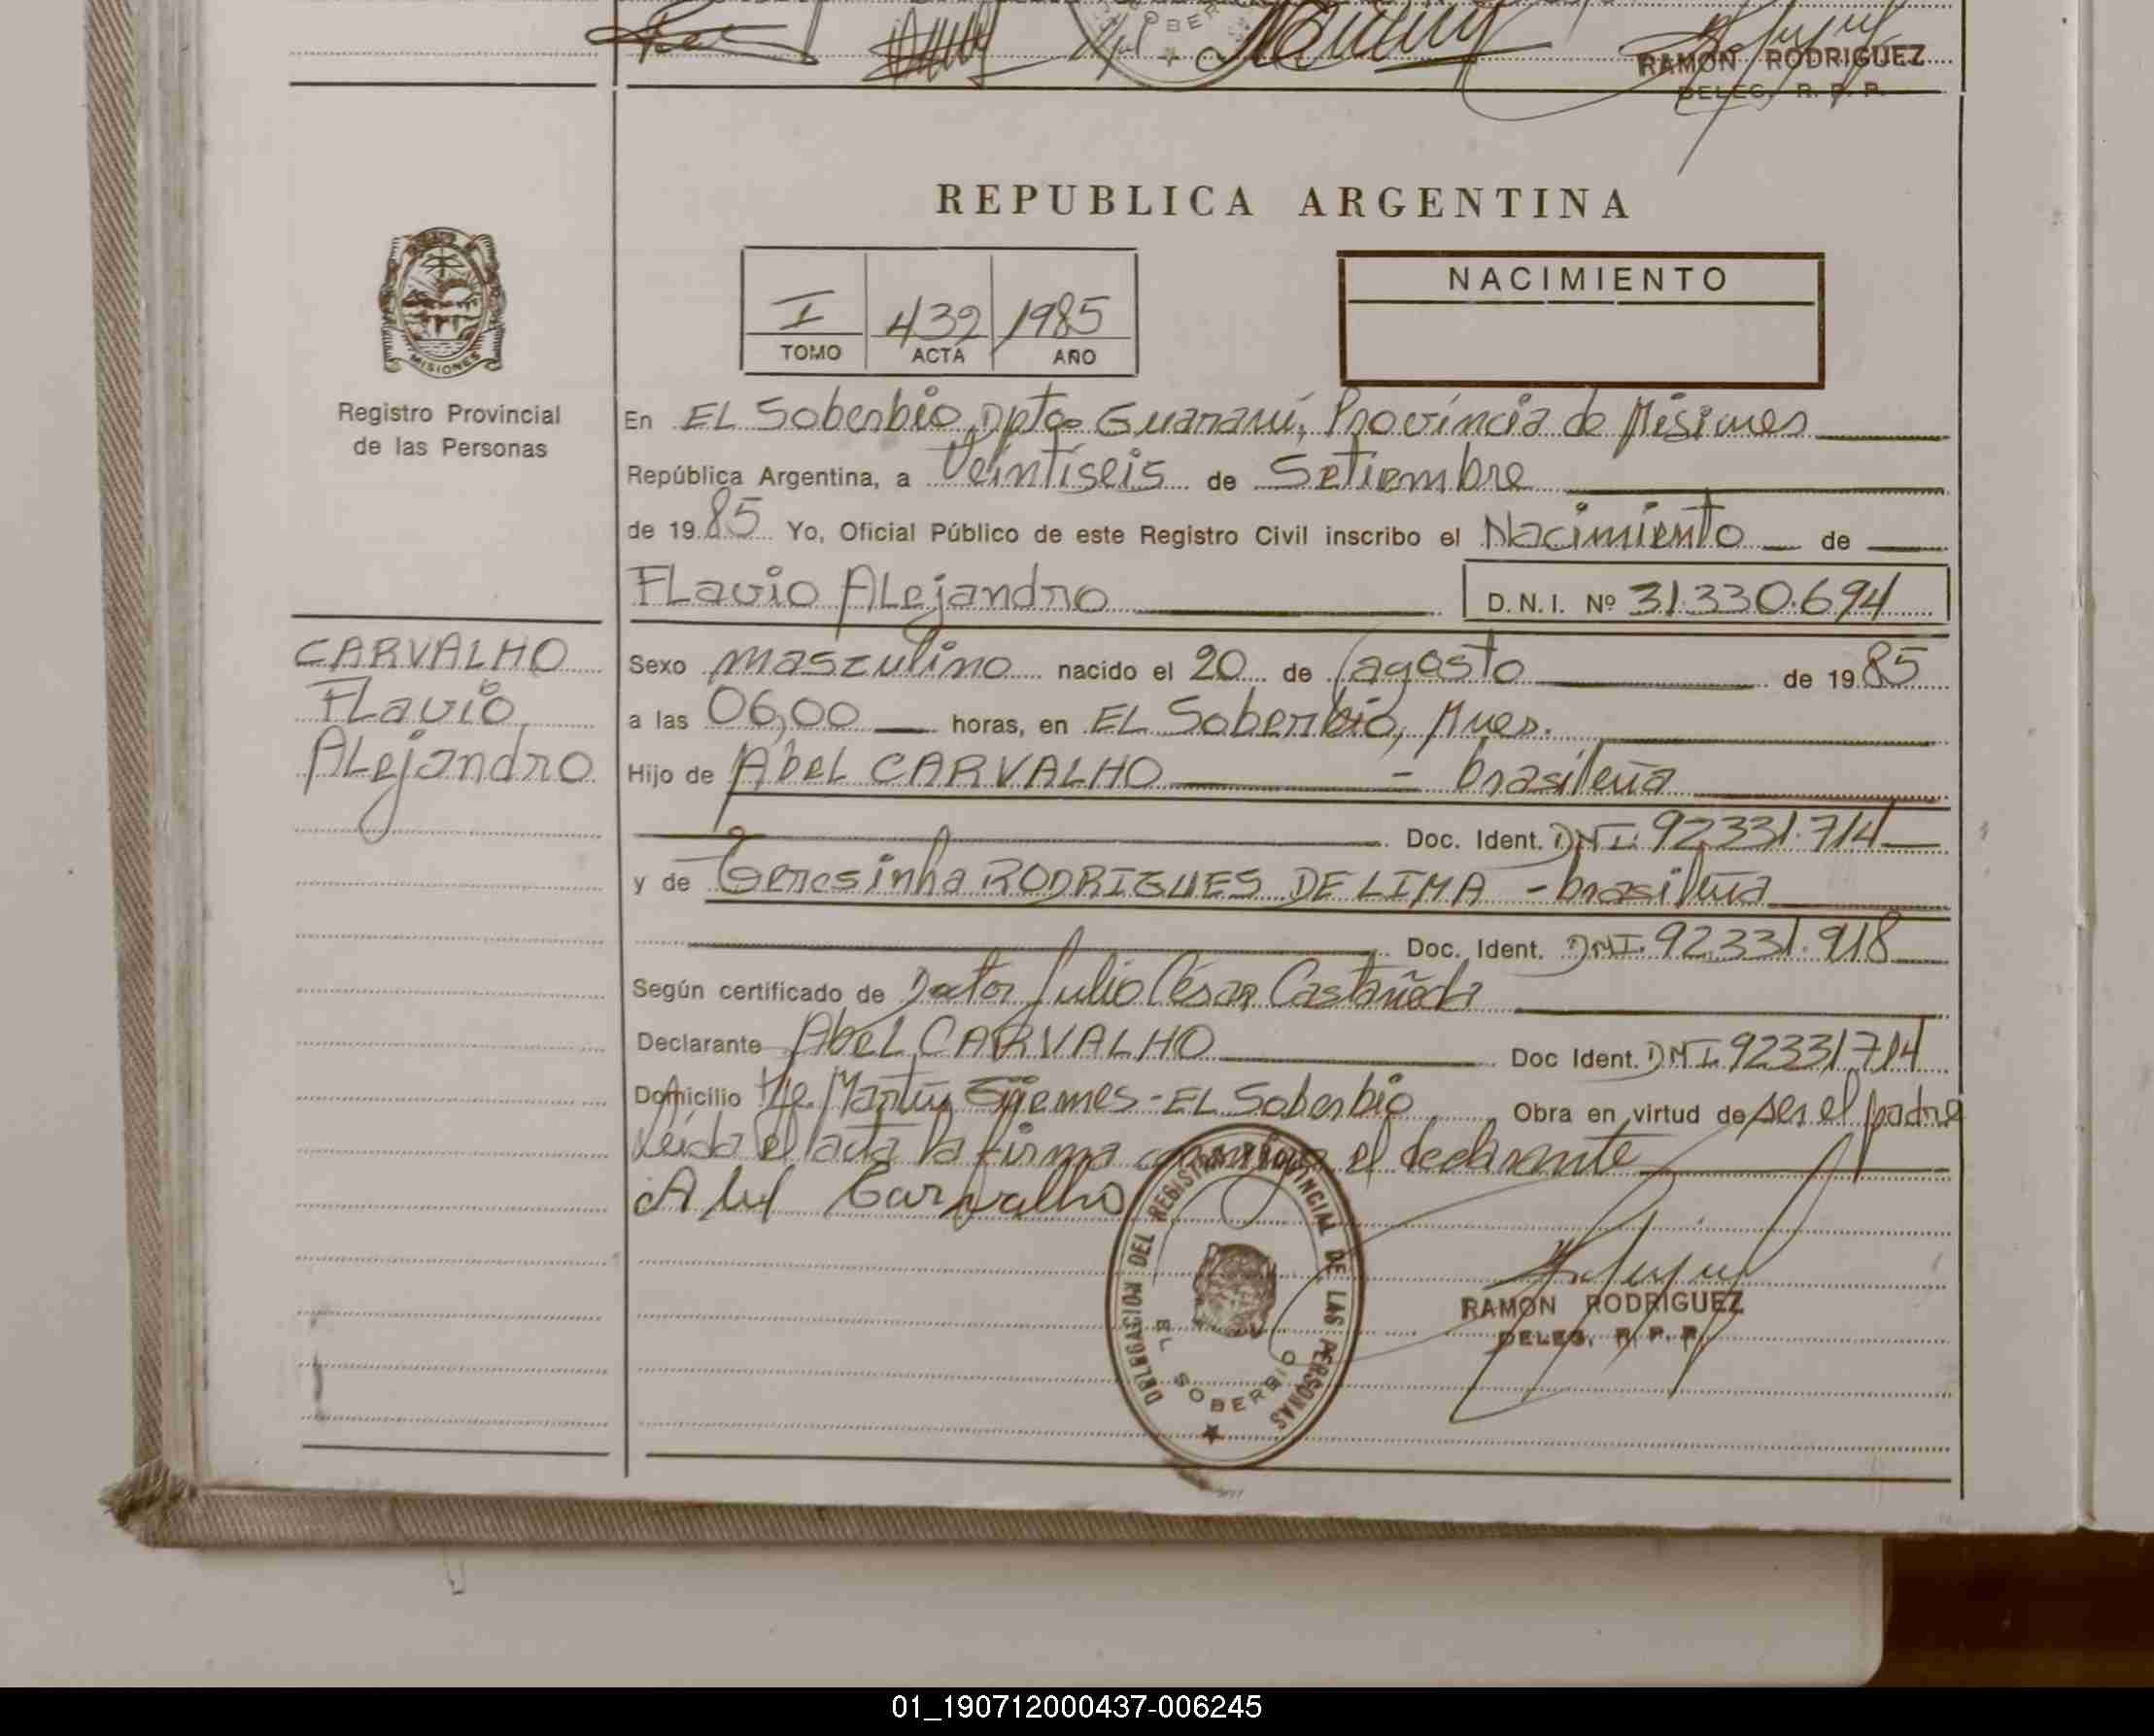 SOBER
RAMON RODRIGUEZ
DELEG. R. P. P.
REPUBLICA ARGENTINA
MISIONES
Registro Provincial
de las Personas
I 432 1985
TOMO ACTA AÑO
NACIMIENTO
En EL Soberbio, Dpto Guaraní, Provincia de Misiones
República Argentina, a Veintiseis de Setiembre
de 1985 Yo, Oficial Público de este Registro Civil inscribo el Nacimiento de
FLavio ALejandro D.N.I. Nº 31.330.694
CARVALHO
FLavio
ALejandro
Sexo masculino nacido el 20 de agosto de 1985
a las 06,00 horas, en EL Soberbio, Mnes.
Hijo de AbeL CARVALHO - brasileña
Doc. Ident. DNI. 92331.714
y de Teresinha RODRIGUES DE LIMA - brasileña
Doc. Ident. DNI. 92331.918
Según certificado de Doctor Julio César Castañeda
Declarante AbeL CARVALHO Doc Ident. DNI. 92331714
Domicilio Martín Güemes - EL Soberbio Obra en virtud de ser el padre
Leida el acta la firma conmigo el declarante
Abel Carvalho
DELEGACION DEL REGISTRO PROVINCIAL DE LAS PERSONAS
EL SOBERBIO
RAMON RODRIGUEZ
DELEG. R. P. P.
01_190712000437-006245